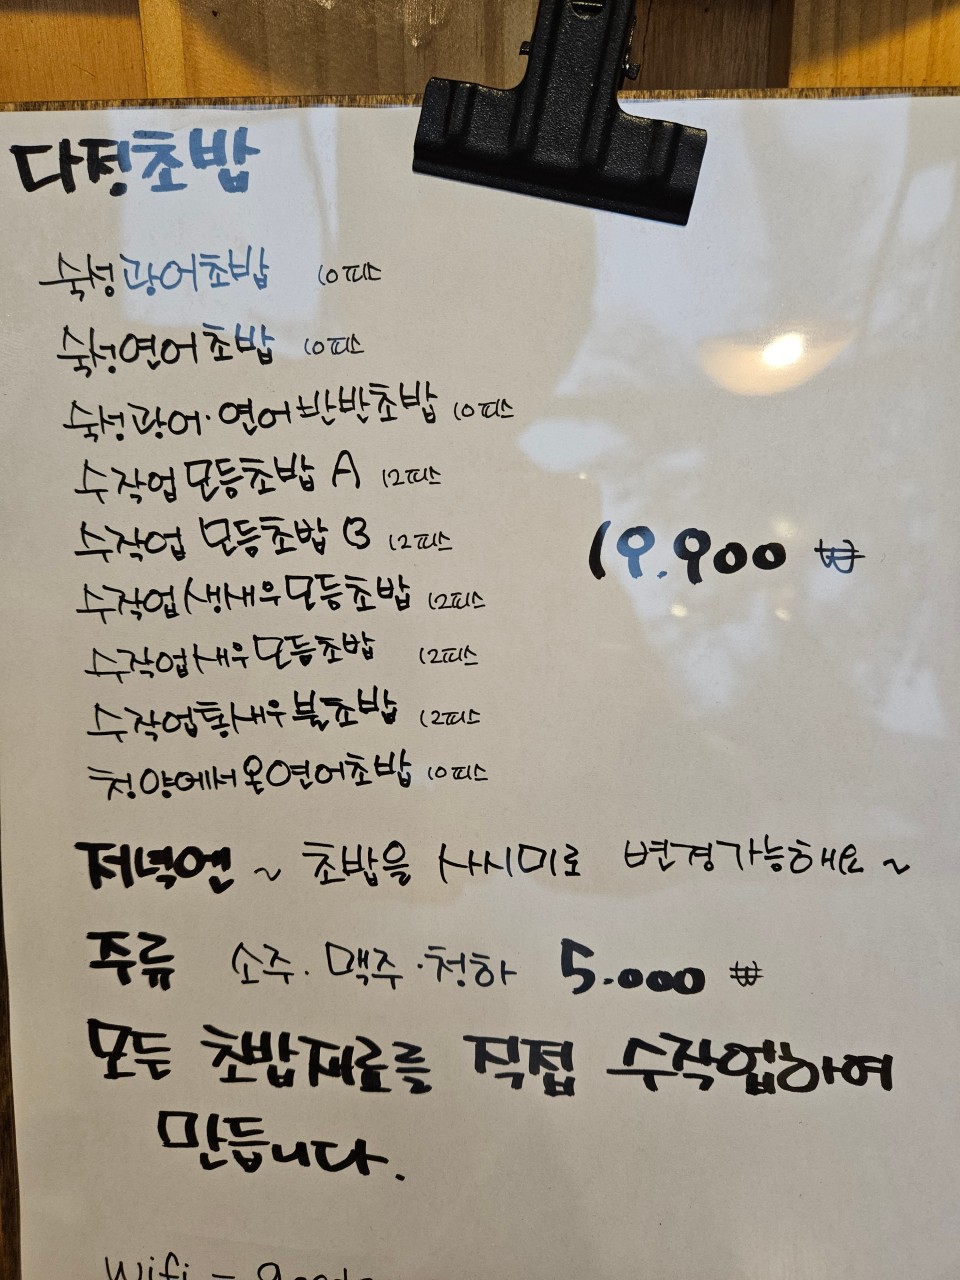 다정초밥
숙성광어초밥 10피스
숙성연어초밥 10피스
숙성광어·연어반반초밥 10피스
수작업모듬초밥 A 12피스
수작업 모듬초밥 B 12피스
19.900 ₩
수작업생새우모듬초밥 12피스
수작업새우모듬초밥 12피스
수작업통새우불초밥 12피스
청양에서온연어초밥 10피스
저녁엔 ~ 초밥을 사시미로 변경가능해요 ~
주류 소주. 맥주·청하 5.000 ₩
모든 초밥재료를 직접 수작업하여
만듭니다.
Wifi -